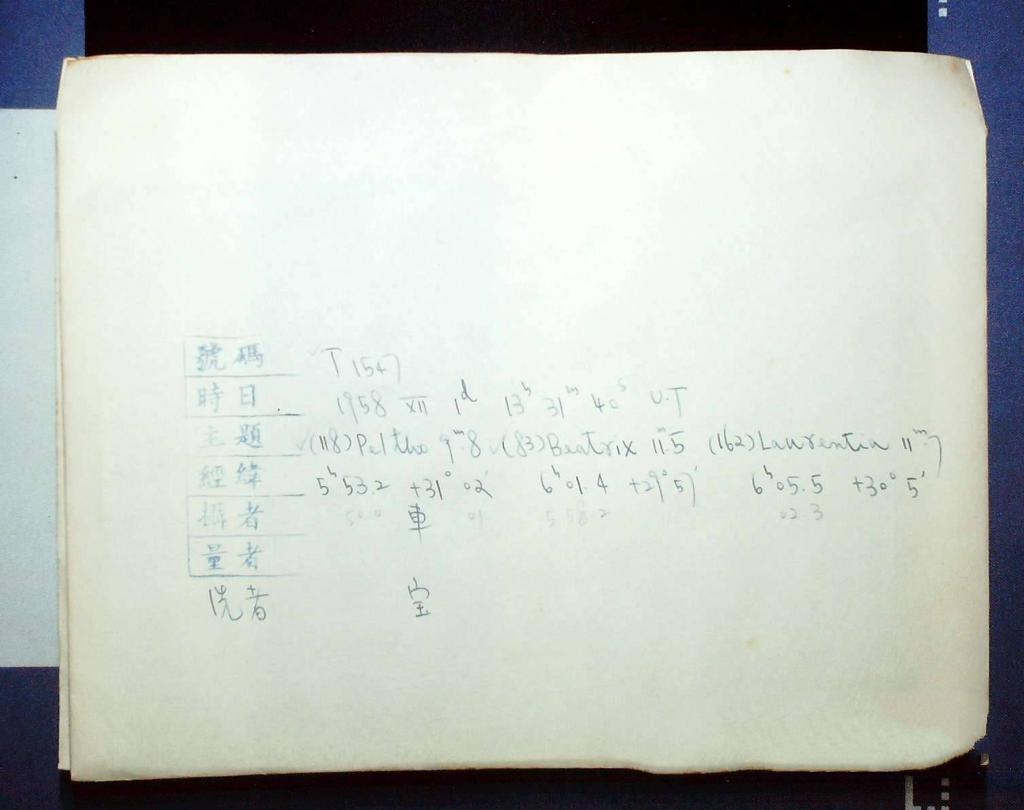 號碼 T 1547
時日 1958 XII 1ᵈ 13ʰ 31ᵐ 40ˢ U.T
主題 ✓(118)Peltho 9ᵐ.8 ✓(83)Beatrix 11ᵐ.5 (162)Laurentia 11ᵐ.7
經緯 5ʰ53.2 +31° 02' 6ʰ01.4 +29°57' 6ʰ05.5 +30° 5'
攝者 50.0 車 01 5 58.2 02.3
量者
洗者 宝